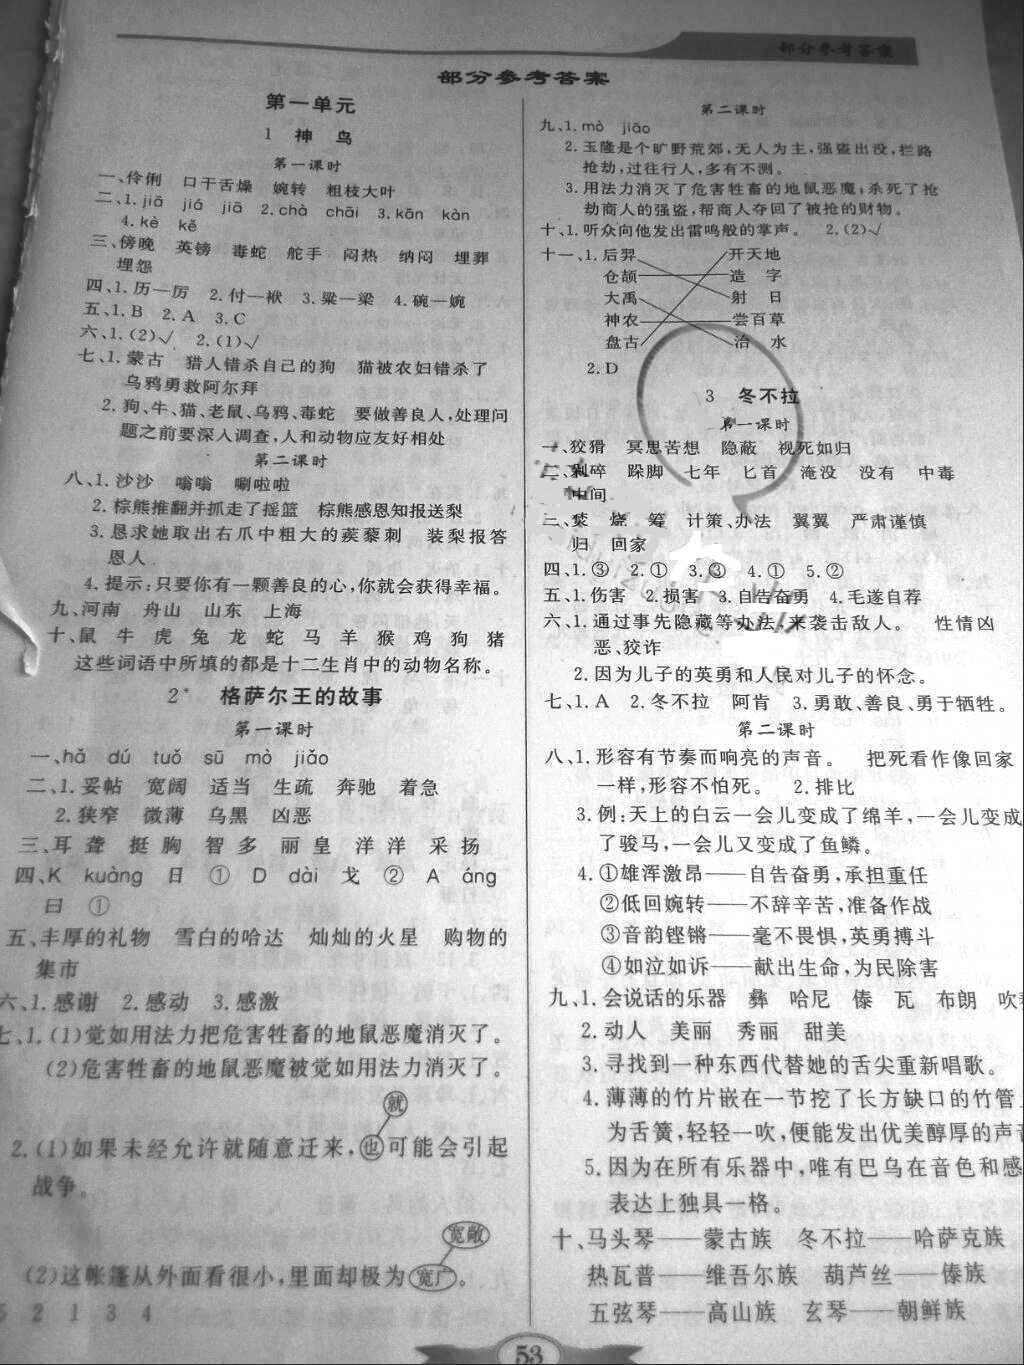 部分参考答案
部分参考答案
第一单元
1 神鸟
第一课时
一、伶俐 口干舌燥 婉转 粗枝大叶
二、1.jiā jiá jiā 2.chà chāi 3.kān kàn
4.kè kě
三、傍晚 英镑 毒蛇 舵手 闷热 纳闷 埋葬
埋怨
四、1.历—厉 2.付—袱 3.粱—梁 4.碗—婉
五、1.B 2.A 3.C
六、1.(2)√ 2.(1)√
七、1.蒙古 猎人错杀自己的狗 猫被农妇错杀了
乌鸦勇救阿尔拜
2.狗、牛、猫、老鼠、乌鸦、毒蛇 要做善良人,处理问
题之前要深入调查,人和动物应友好相处
第二课时
八、1.沙沙 嗡嗡 唰啦啦
2.棕熊推翻并抓走了摇篮 棕熊感恩知报送梨
3.恳求她取出右爪中粗大的蒺藜刺 装梨报答
恩人
4.提示:只要你有一颗善良的心,你就会获得幸福。
九、河南 舟山 山东 上海
十、鼠 牛 虎 兔 龙 蛇 马 羊 猴 鸡 狗 猪
这些词语中所填的都是十二生肖中的动物名称。
2* 格萨尔王的故事
第一课时
一、hǎ dú tuǒ sū mò jiǎo
二、1.妥帖 宽阔 适当 生疏 奔驰 着急
2.狭窄 微薄 乌黑 凶恶
三、耳聋 挺胸 智多 丽皇 洋洋 采扬
四、K kuàng 日 ① D dài 戈 ② A áng
日 ①
五、丰厚的礼物 雪白的哈达 灿灿的火星 购物的
集市
六、1.感谢 2.感动 3.感激
七、1.(1)觉如用法力把危害牲畜的地鼠恶魔消灭了。
(2)危害牲畜的地鼠恶魔被觉如用法力消灭了。
就
2.(1)如果未经允许就随意迁来,也可能会引起
战争。
宽敞
(2)这帐篷从外面看很小,里面却极为宽广。
5 2 1 3 4
第二课时
九、1.mò jiāo
2.玉隆是个旷野荒郊,无人为主,强盗出没,拦路
抢劫,过往行人,多有不测。
3.用法力消灭了危害牲畜的地鼠恶魔;杀死了抢
劫商人的强盗,帮商人夺回了被抢的财物。
十、1.听众向他发出雷鸣般的掌声。 2.(2)√
十一、1.后羿 开天地
仓颉 造字
大禹 射日
神农 尝百草
盘古 治水
2.D
3 冬不拉
第一课时
一、狡猾 冥思苦想 隐蔽 视死如归
二、剁碎 跺脚 七年 匕首 淹没 没有 中毒
中间
三、焚 烧 筹 计策、办法 翼翼 严肃谨慎
归 回家
四、1.③ 2.① 3.③ 4.① 5.②
五、1.伤害 2.损害 3.自告奋勇 4.毛遂自荐
六、1.通过事先隐藏等办法,来袭击敌人。 性情凶
恶、狡诈
2.因为儿子的英勇和人民对儿子的怀念。
七、1.A 2.冬不拉 阿肯 3.勇敢、善良、勇于牺牲。
第二课时
八、1.形容有节奏而响亮的声音。 把死看作像回家
一样,形容不怕死。 2.排比
3.例:天上的白云一会儿变成了绵羊,一会儿变成
了骏马,一会儿又变成了鱼鳞。
4.①雄浑激昂——自告奋勇,承担重任
②低回婉转——不辞辛苦,准备作战
③音韵铿锵——毫不畏惧,英勇搏斗
④如泣如诉——献出生命,为民除害
九、1.会说话的乐器 彝 哈尼 傣 瓦 布朗 吹
2.动人 美丽 秀丽 甜美
3.寻找到一种东西代替她的舌尖重新唱歌。
4.薄薄的竹片嵌在一节挖了长方缺口的竹管上
为舌簧,轻轻一吹,便能发出优美醇厚的声音
5.因为在所有乐器中,唯有巴乌在音色和感
表达上独具一格。
十、马头琴——蒙古族 冬不拉——哈萨克族
热瓦普——维吾尔族 葫芦丝——傣族
五弦琴——高山族 玄琴——朝鲜族
53